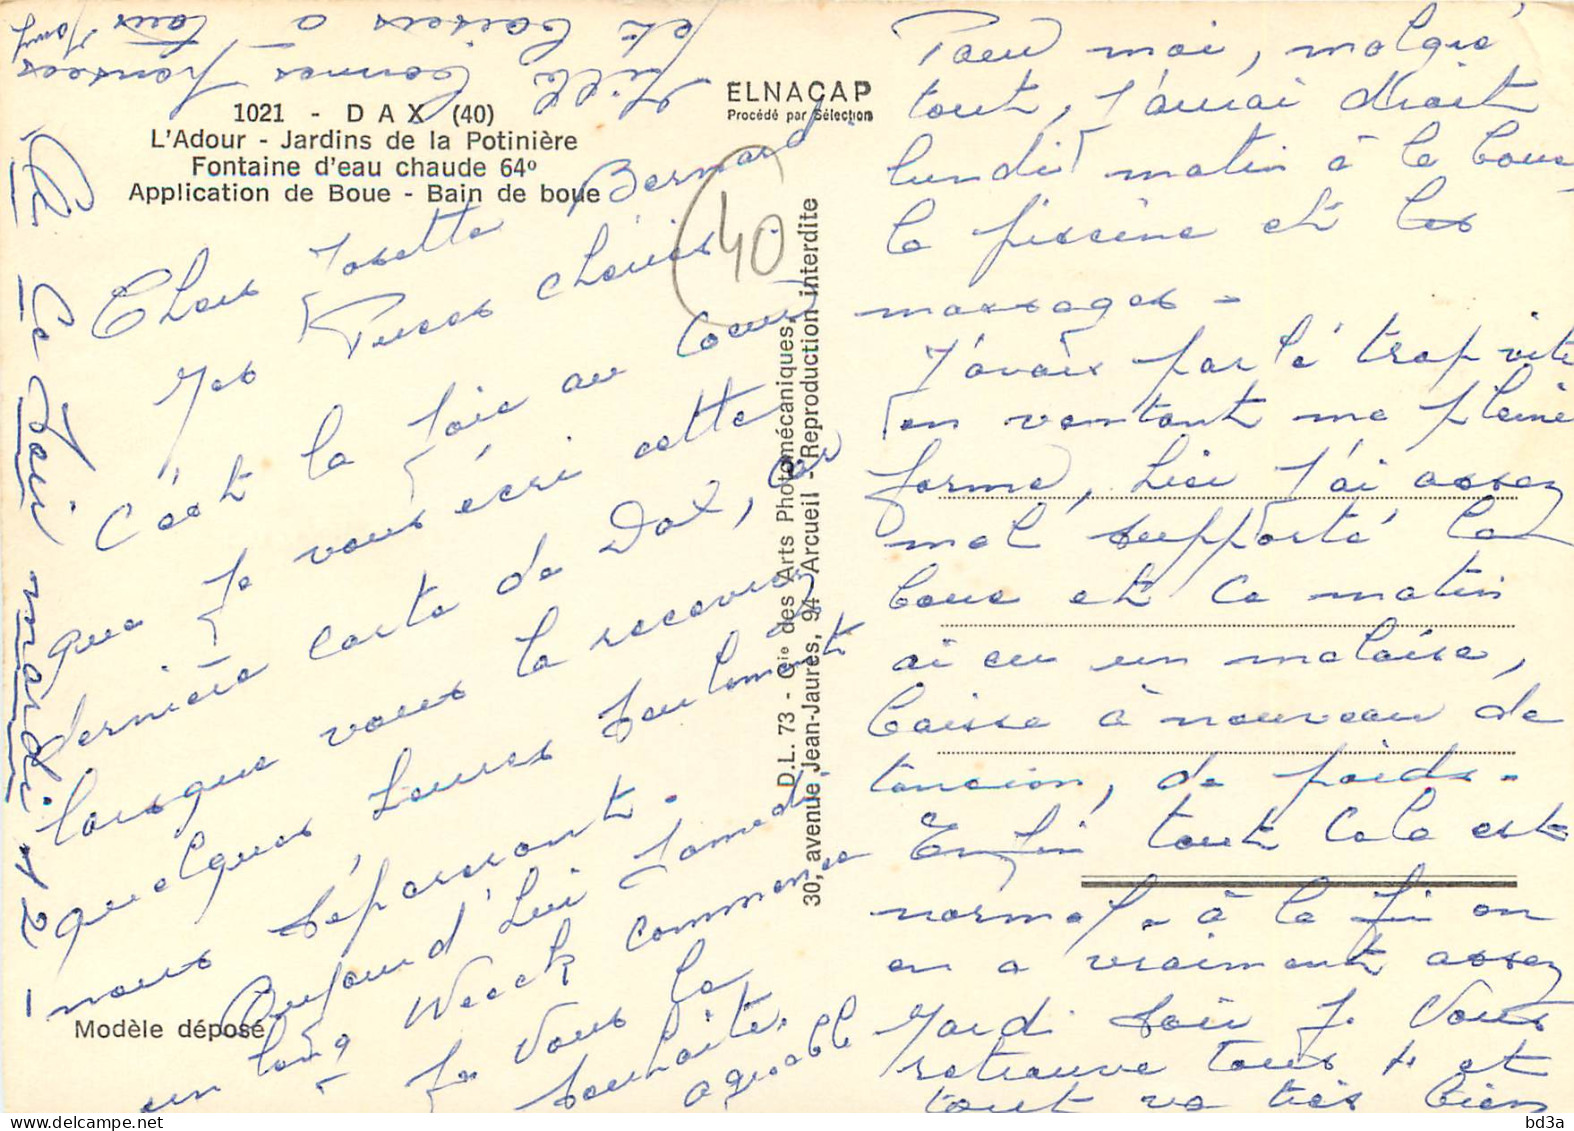 1021 - DAX (40)
L'Adour - Jardins de la Potinière
Fontaine d'eau chaude 64°
Application de Boue - Bain de boue
ELNACAP
Procédé par Sélection
40
Chers Josette Bernard.
Mes Puces chéries.
C'est la joie au Coeur
que je vous écri cette
dernière carte de Dax, car
lorsque vous la recevrez
quelques heures seulement
nous sépareront.
Aujourd'hui Samedi
un long Week commence
je vous le
souhaite.
agréable
Pour moi, malgré
tout, j'aurai droit
lundi matin à la boue,
la piscine et les
massages -
J'avais parlé trop vite
en vantant ma pleine
forme, hier j'ai assez
mal supporté la
boue et ce matin
ai eu un malaise,
baisse à nouveau de
tension, de poids -
Enfin tout cela est
normal. à la fin on
en a vraiment assez
Mardi soir je Vous
retrouve tous 4 et
tout va très bien
Mille bonnes pensées
et baisers à tous
Le Jour mardi 12 -
D.L. 73 - Cie des Arts Photomécaniques,
30, avenue Jean-Jaurès, 94 - Arcueil - Reproduction interdite
Modèle déposé
bd3a